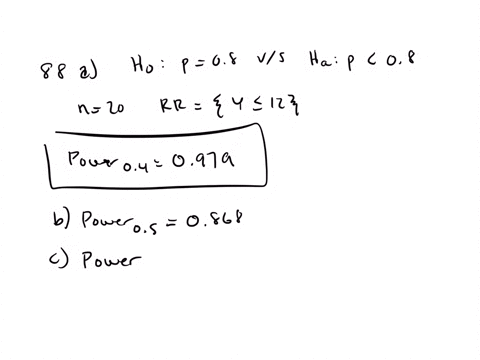 88 a) H₀: p = 0.8 v/s Hₐ: p < 0.8
n=20 RR = {Y ≤ 12}
Power₀.₄ = 0.979
b) Power₀.₅ = 0.868
c) Power